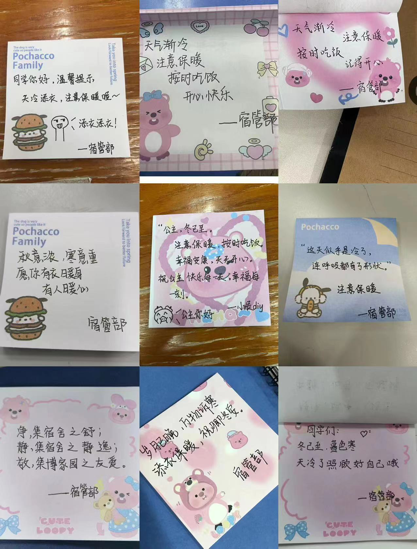 Pochacco
Family
同学你好，温馨提示
天冷添衣，注意保暖哦～
添衣添衣！
——宿管部
天气渐冷
注意保暖
按时吃饭
开心快乐
——宿管部
天气渐冷
注意保暖
按时吃饭
记得开心
——宿管部
Pochacco
Family
秋意淡，寒意重
愿你有衣日暖身
有人暖心
宿管部
“公主，冬已至，
注意保暖，按时吃饭，
幸福安康，天天开心，
祝公主快乐每一天，幸福每
一刻。
公主你好
Pochacco
“这天似乎是冷了，
连呼吸都有了形状。”
注意保暖
——宿管部
净，集宿舍之舒；
静，集宿舍之静逸；
敬，集博家园之友爱。
——宿管部
CUTE
LOOPY
岁月已晚，万物将寒
添衣保暖，祝祺冬安
宿管部
同学们：
冬已至，暮色寒
天冷了照顾好自己哦
——宿管部
CUTE
LOOPY